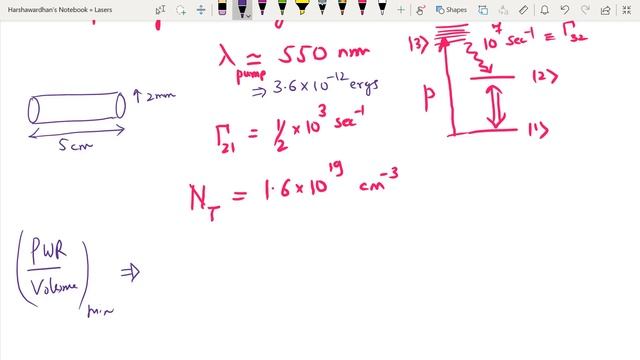 Harshawardhan's Notebook » Lasers
Shapes
λ pump ≃ 550 nm
⇒ 3.6×10^-12 ergs
Γ21 = 1/2 × 10^3 sec^-1
N_T = 1.6×10^19 cm^-3
2mm
5cm
|3>
10^7 sec^-1 ≡ Γ32
|2>
P
|1>
(PWR / Volume)min ⇒